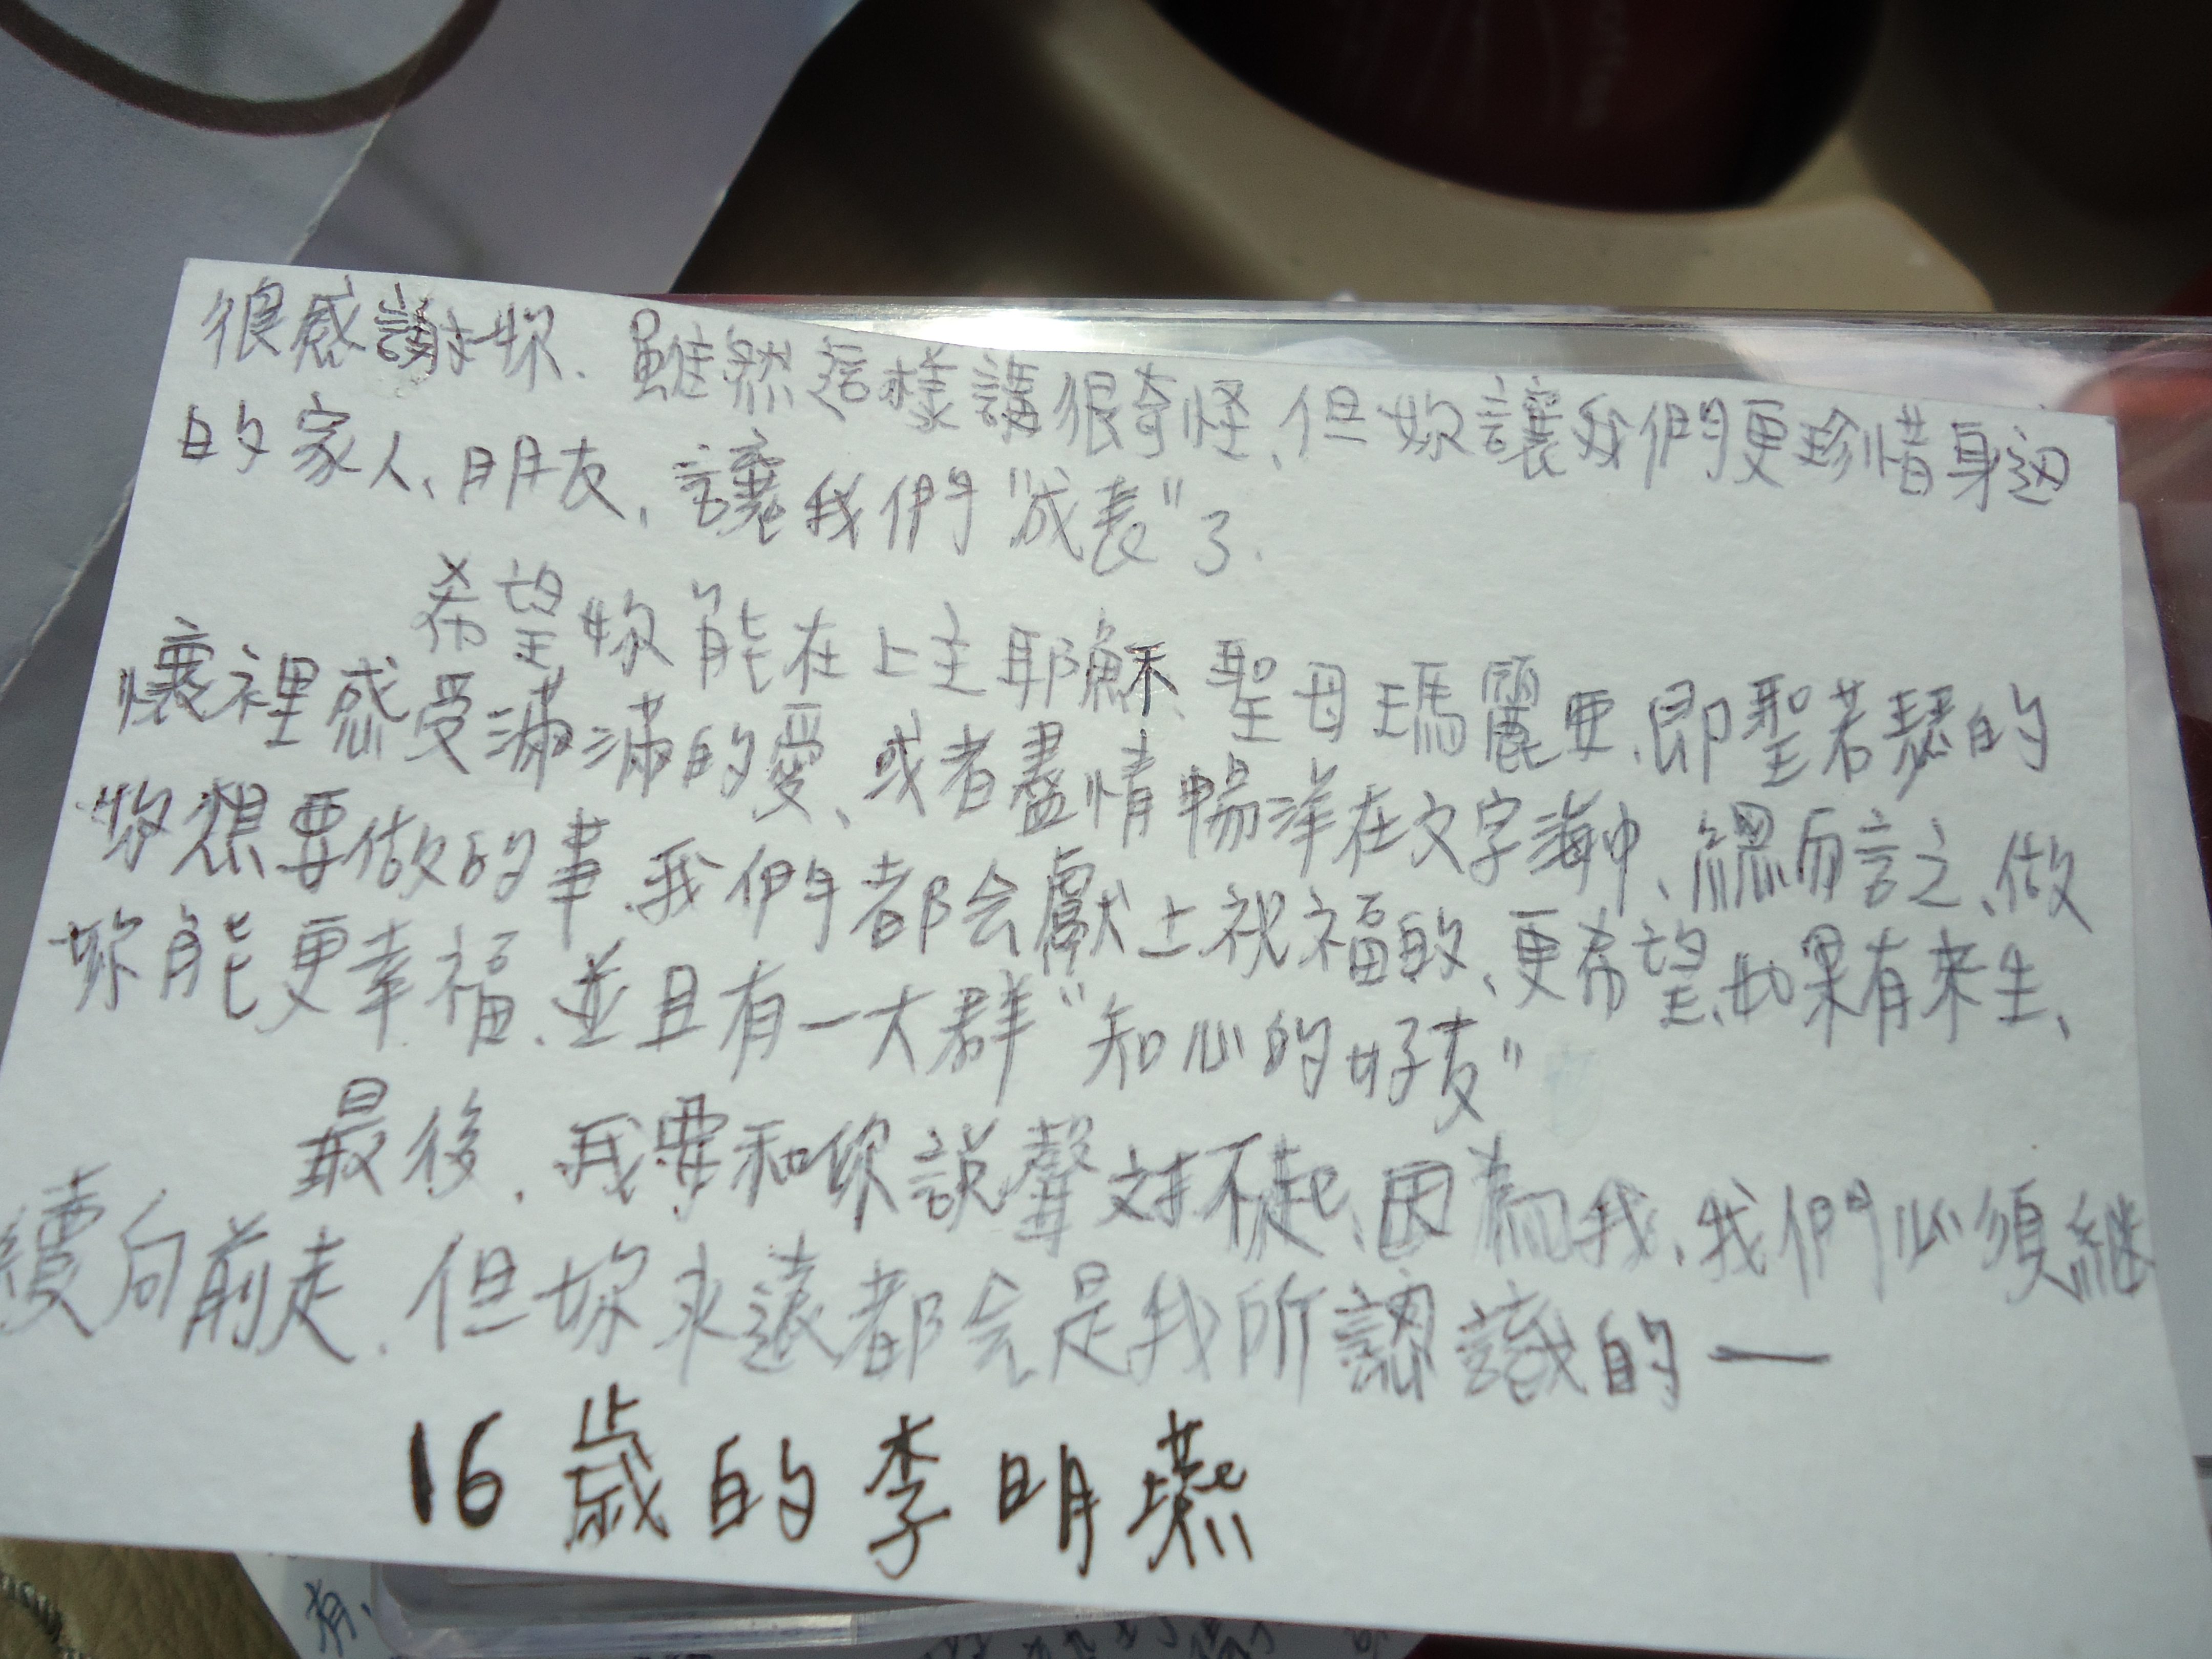 很感謝妳、雖然這樣講很奇怪、但妳讓我們更珍惜身邊
的家人、朋友、讓我們"成長"了.
希望妳能在上主耶穌、聖母瑪麗亞、即聖若瑟的
懷裡感受滿滿的愛、或者盡情暢洋在文字海中、總而言之、做
妳想要做的事、我們都会獻上祝福的、更希望、如果有來生、
妳能更幸福、並且有一大群"知心的好友"
最後、我要和你說聲对不起、因為我、我們必須継
續向前走、但妳永遠都会是我所認識的一
16歲的李明
有、